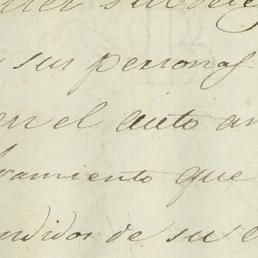 sus personas
en el auto an
ramiento que
ndidos de su c